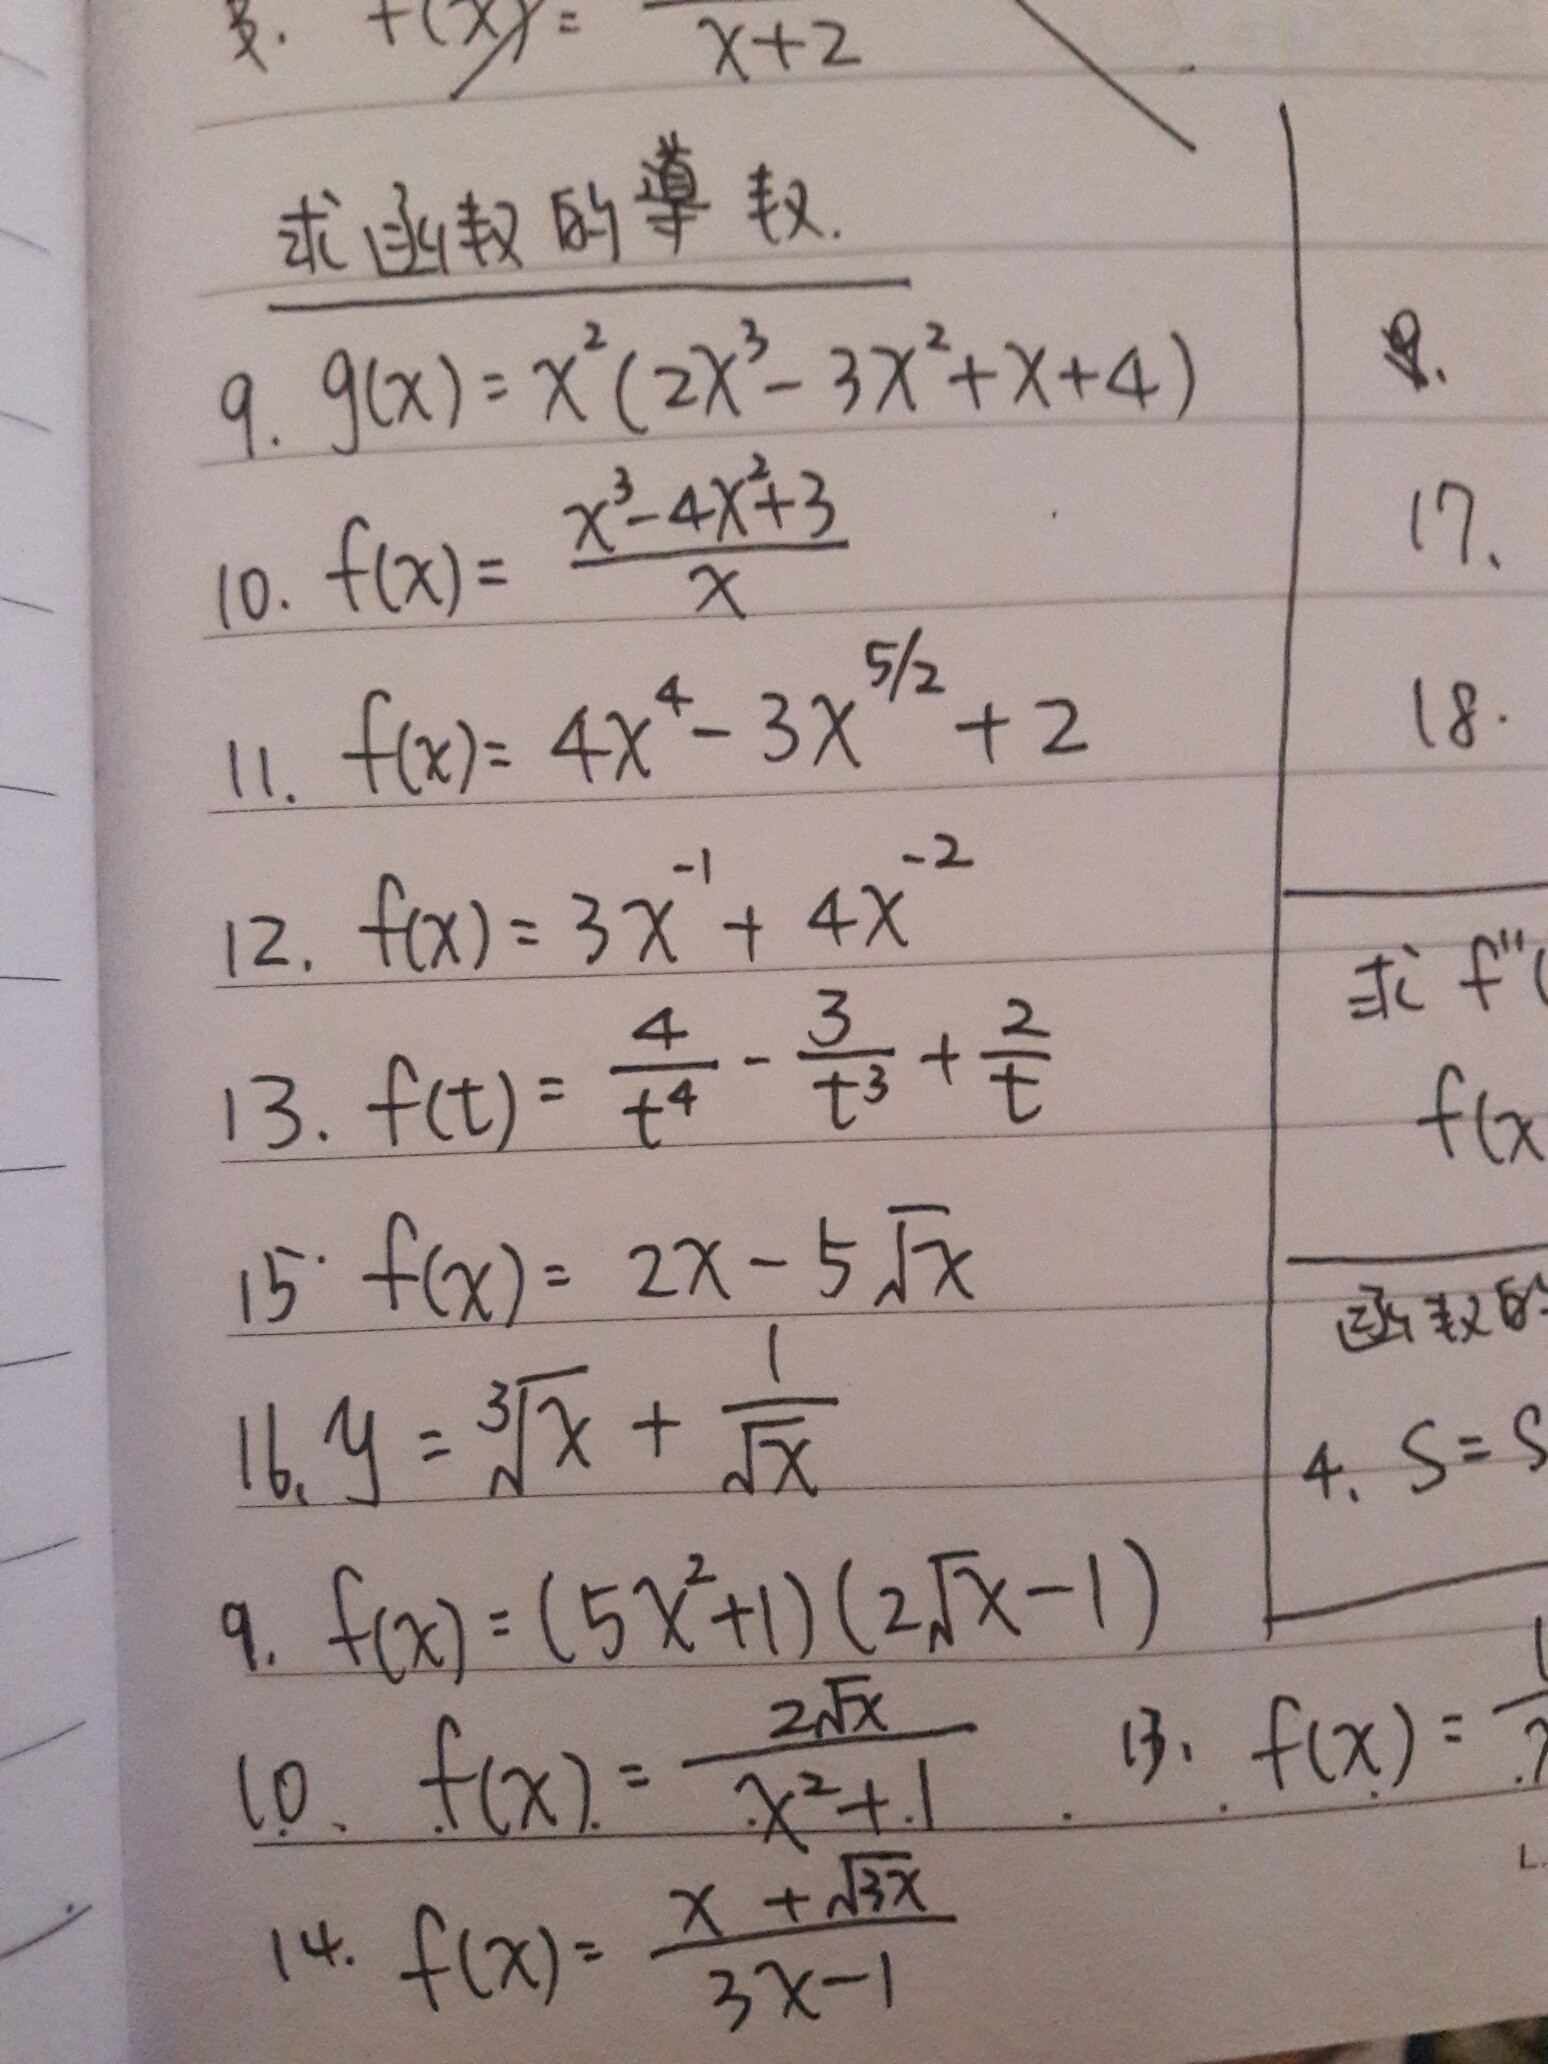 8. f(x) = x+2
求函数的導数.
9. g(x) = x²(2x³ - 3x² + x + 4)
10. f(x) = (x³ - 4x² + 3)/x
11. f(x) = 4x⁴ - 3x^5/2 + 2
12. f(x) = 3x⁻¹ + 4x⁻²
13. f(t) = 4/t⁴ - 3/t³ + 2/t
15. f(x) = 2x - 5√x
16. y = ³√x + 1/√x
9. f(x) = (5x²+1)(2√x - 1)
10. f(x) = 2√x/(x²+1)
13. f(x) =
14. f(x) = (x + √3x)/(3x - 1)
9.
17.
18.
求 f''(
f(x
函数的
4. S = S